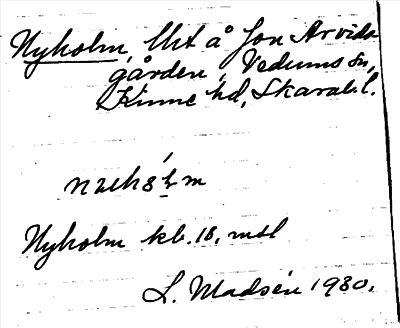 Nyholm, lht å Jon Arvids
gården, Vedums sn,
Kinne hd, Skarab. l.
Nyholm kb. 18, msl
L. Madsén 1930.